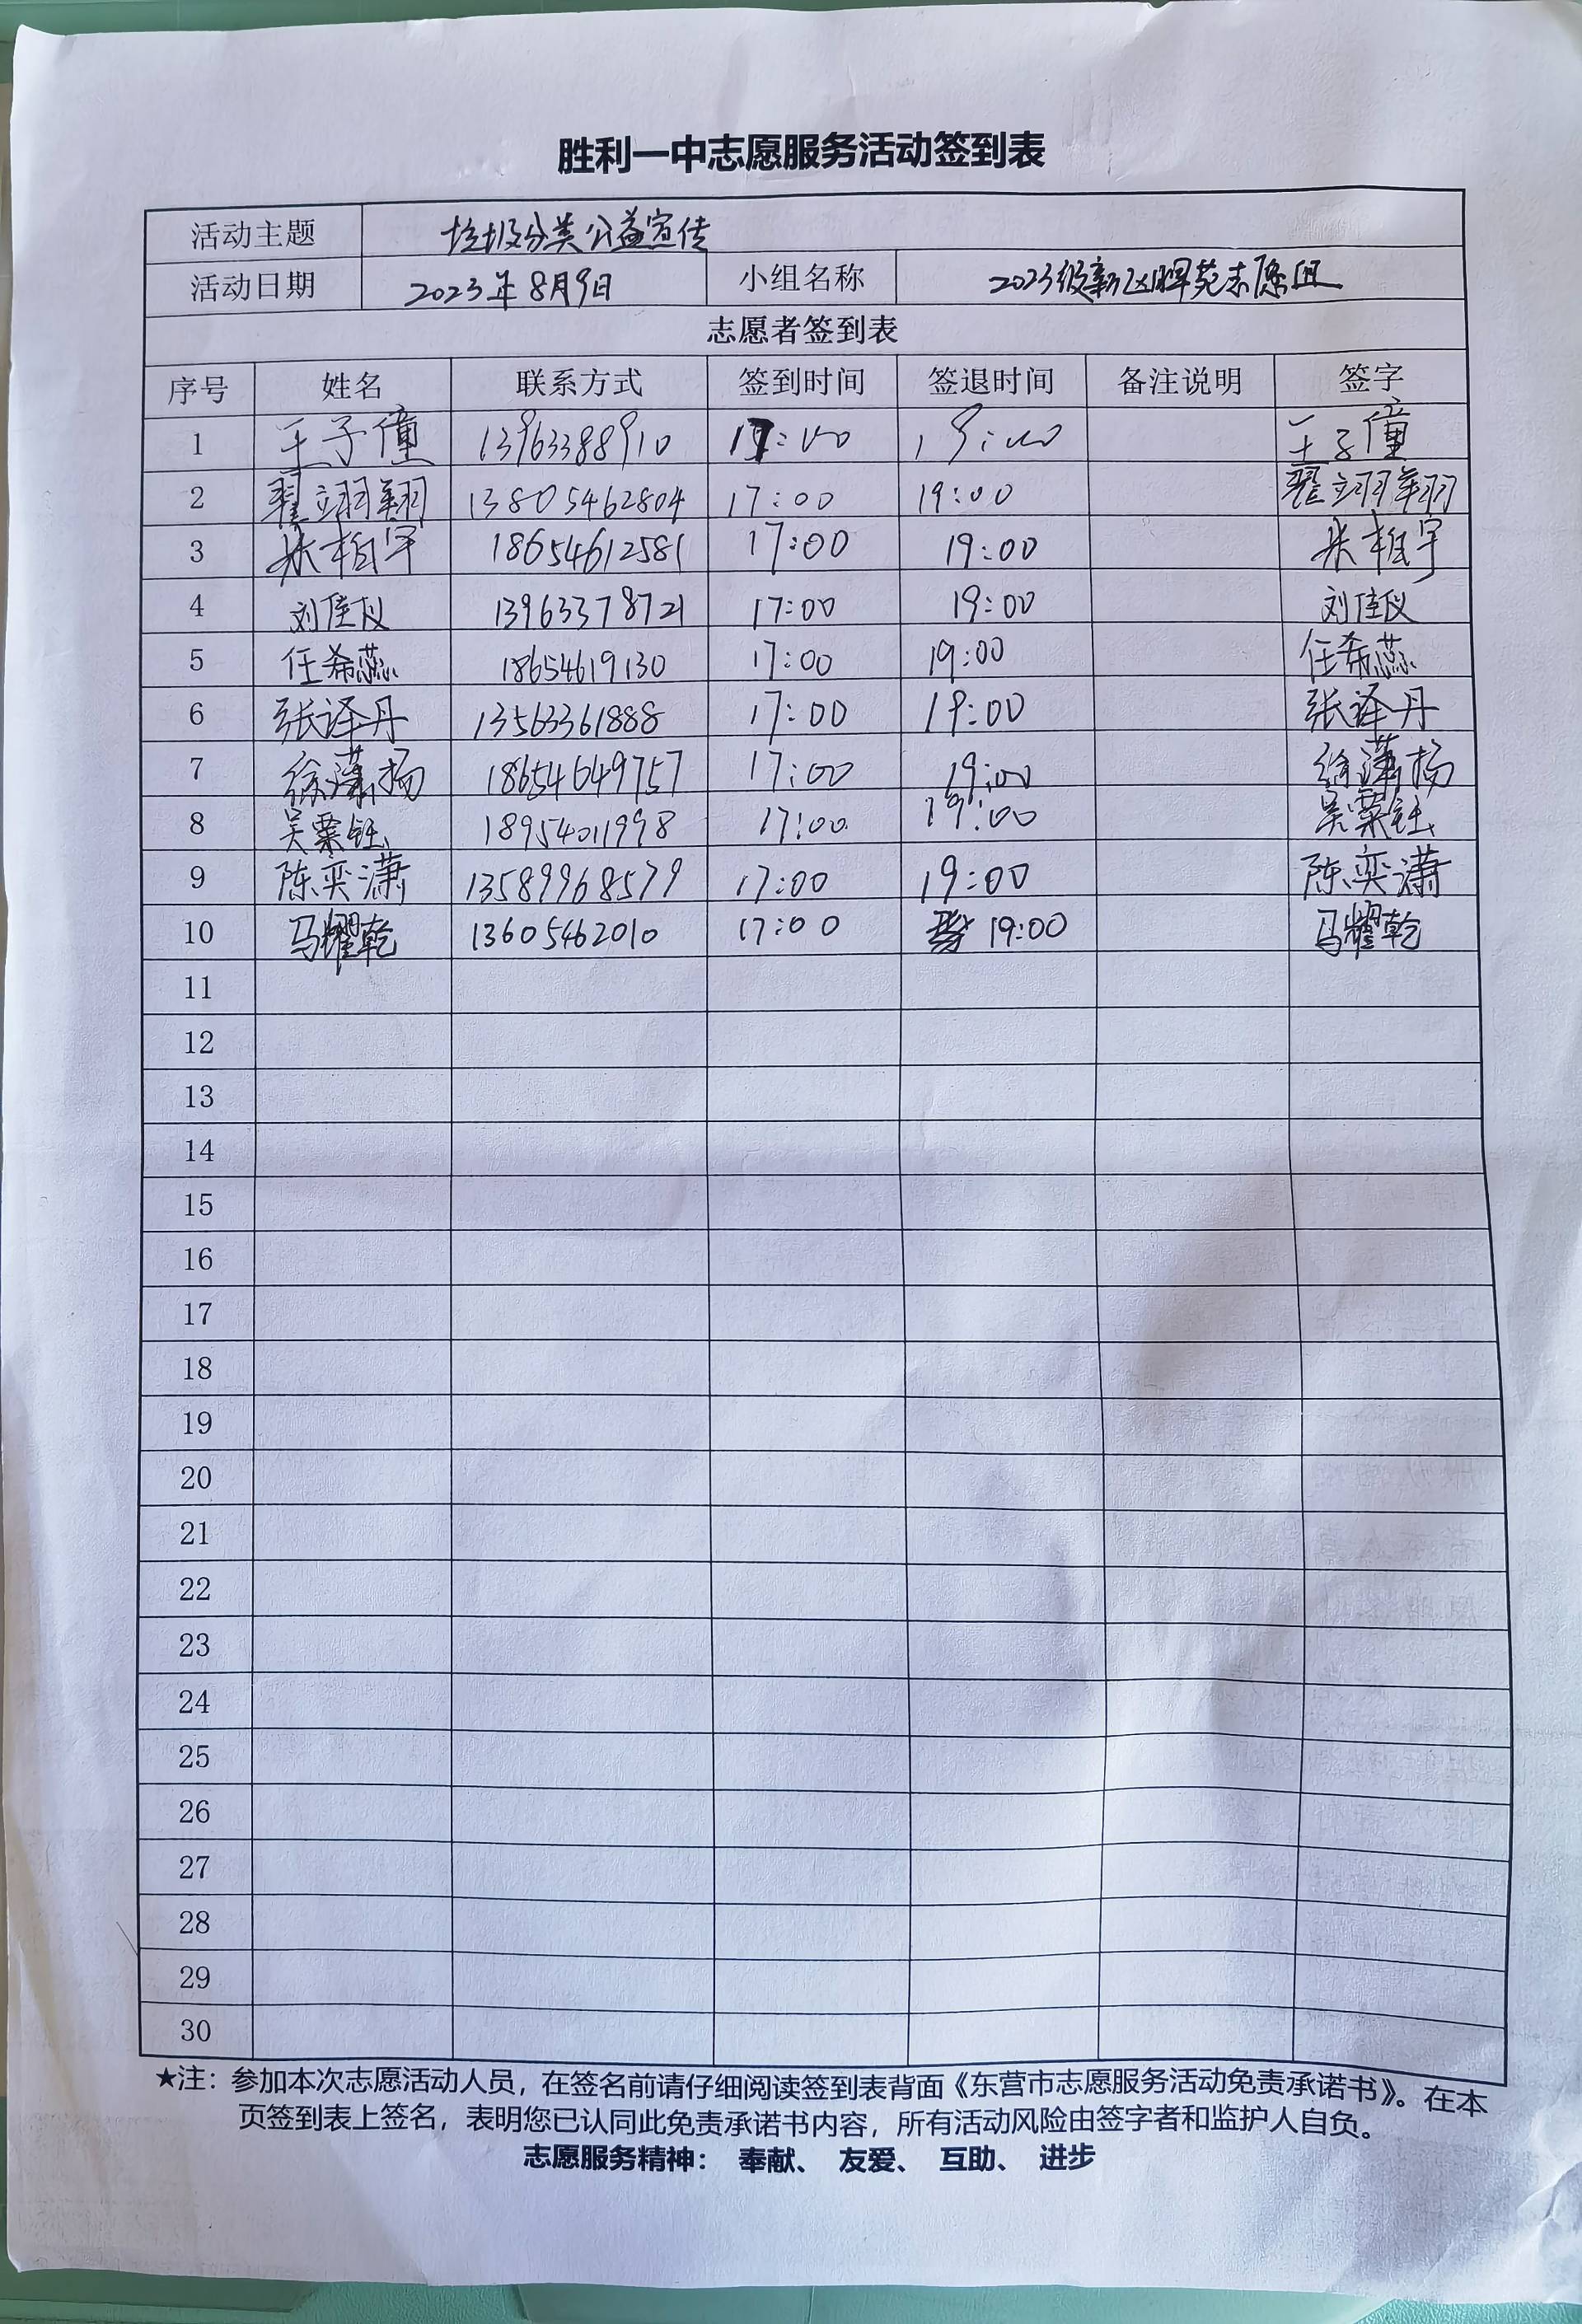 胜利一中志愿服务活动签到表
活动主题 垃圾分类公益宣传
活动日期 2023年8月9日 小组名称 2023级新区晖苑志愿组
志愿者签到表
序号 姓名 联系方式 签到时间 签退时间 备注说明 签字
1 王子僮 13963388910 17:00 19:00 王子僮
2 翟翊翔 13805462804 17:00 19:00 翟翊翔
3 张栢宇 18654612581 17:00 19:00 张栢宇
4 刘佳仪 13963378721 17:00 19:00 刘佳仪
5 任希蕊 18654619130 17:00 19:00 任希蕊
6 张译丹 13563361888 17:00 19:00 张译丹
7 徐潇扬 18654649757 17:00 19:00 徐潇扬
8 吴粟钰 18954011998 17:00 19:00 吴粟钰
9 陈奕潇 13589968579 17:00 19:00 陈奕潇
10 马耀乾 13605462010 17:00 19:00 马耀乾
11
12
13
14
15
16
17
18
19
20
21
22
23
24
25
26
27
28
29
30
★注：参加本次志愿活动人员，在签名前请仔细阅读签到表背面《东营市志愿服务活动免责承诺书》。在本
页签到表上签名，表明您已认同此免责承诺书内容，所有活动风险由签字者和监护人自负。
志愿服务精神： 奉献、 友爱、 互助、 进步